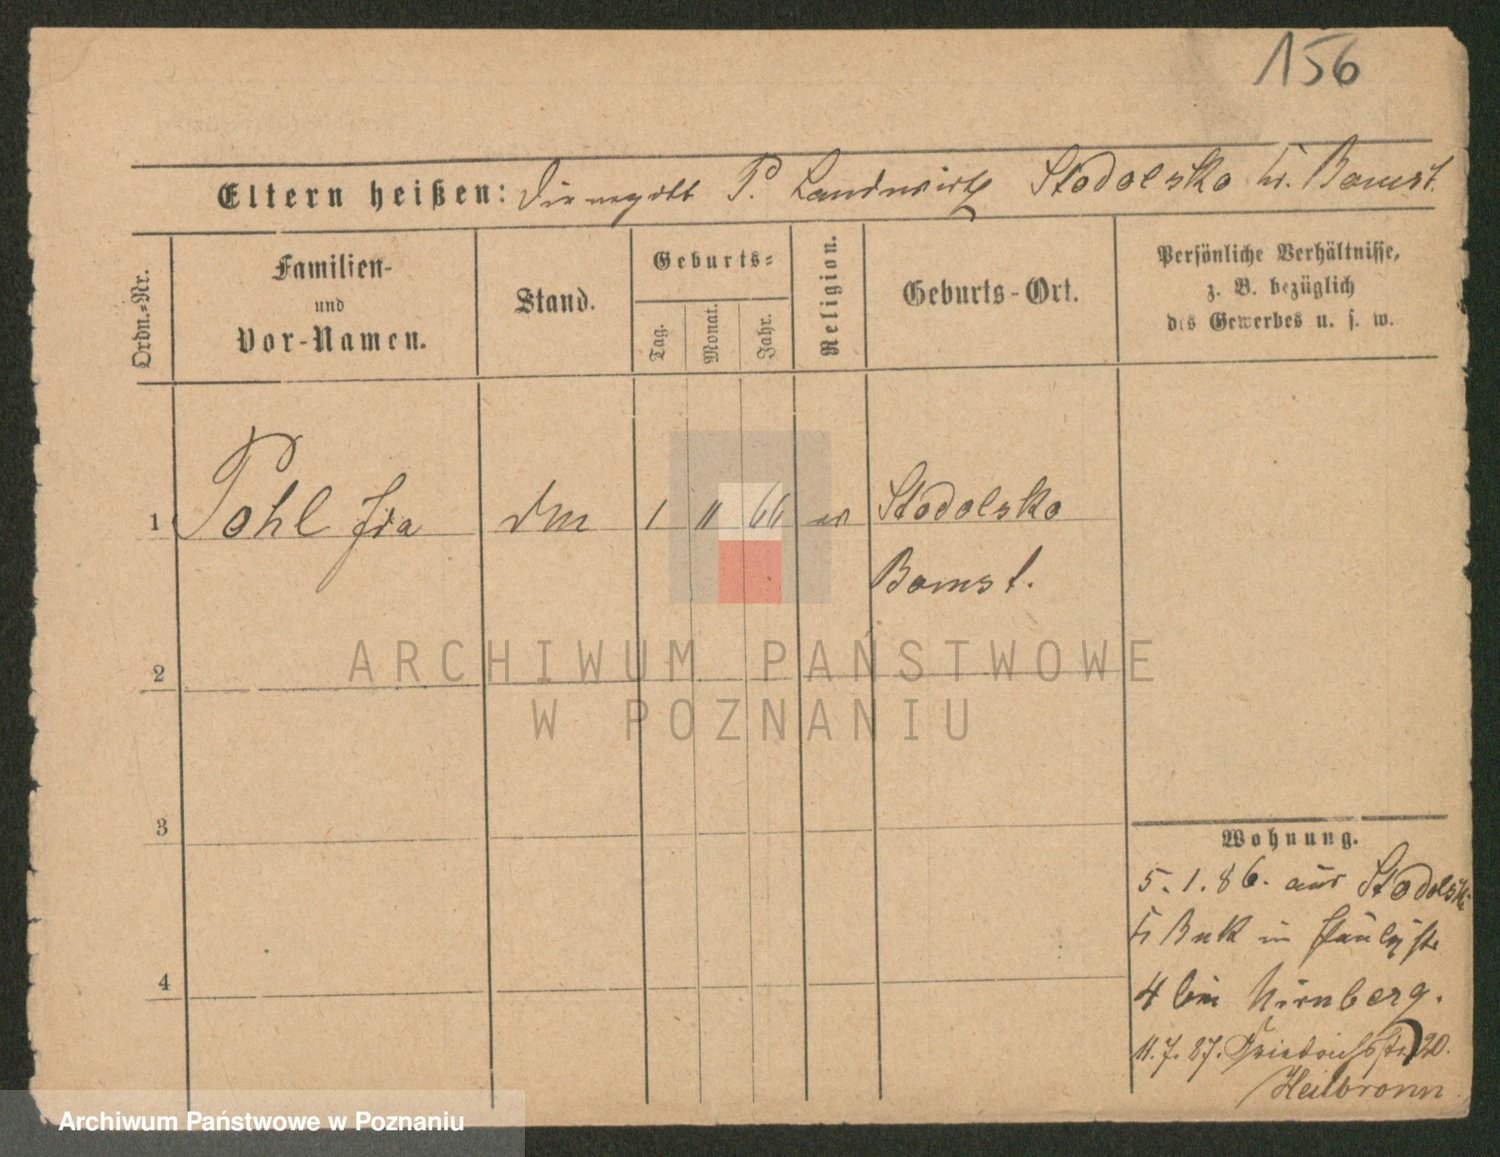 156
Eltern heißen: P. Landwirth Stodolsko Kr. Bomst.
Ordn.-Nr.
Familien-
und
Vor-Namen.
Stand.
Geburts-
Tag.
Monat.
Jahr.
Religion.
Geburts-Ort.
Persönliche Verhältnisse,
z. B. bezüglich
des Gewerbes u. s. w.
1 Pohl Ida 1 11 66 Stodolsko
Bomst.
2
3
4
Wohnung.
5.1.86. aus Stodolsk
Kr Buk in
4 bei Nirnberg.
11.7.87. Friedrichstr. 20.
Heilbronn
ARCHIWUM PAŃSTWOWE
W POZNANIU
Archiwum Państwowe w Poznaniu